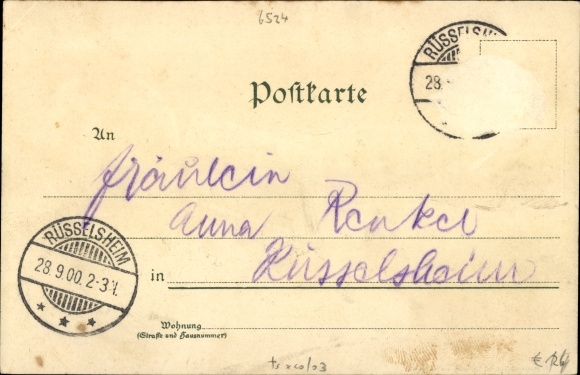 6524
RÜSSELSH
28.
Postkarte
An
Fräulein
Anna Renkel
in Rüsselsheim
RÜSSELSHEIM
28 9.00. 2-3 N.
Wohnung
(Straße und Hausnummer)